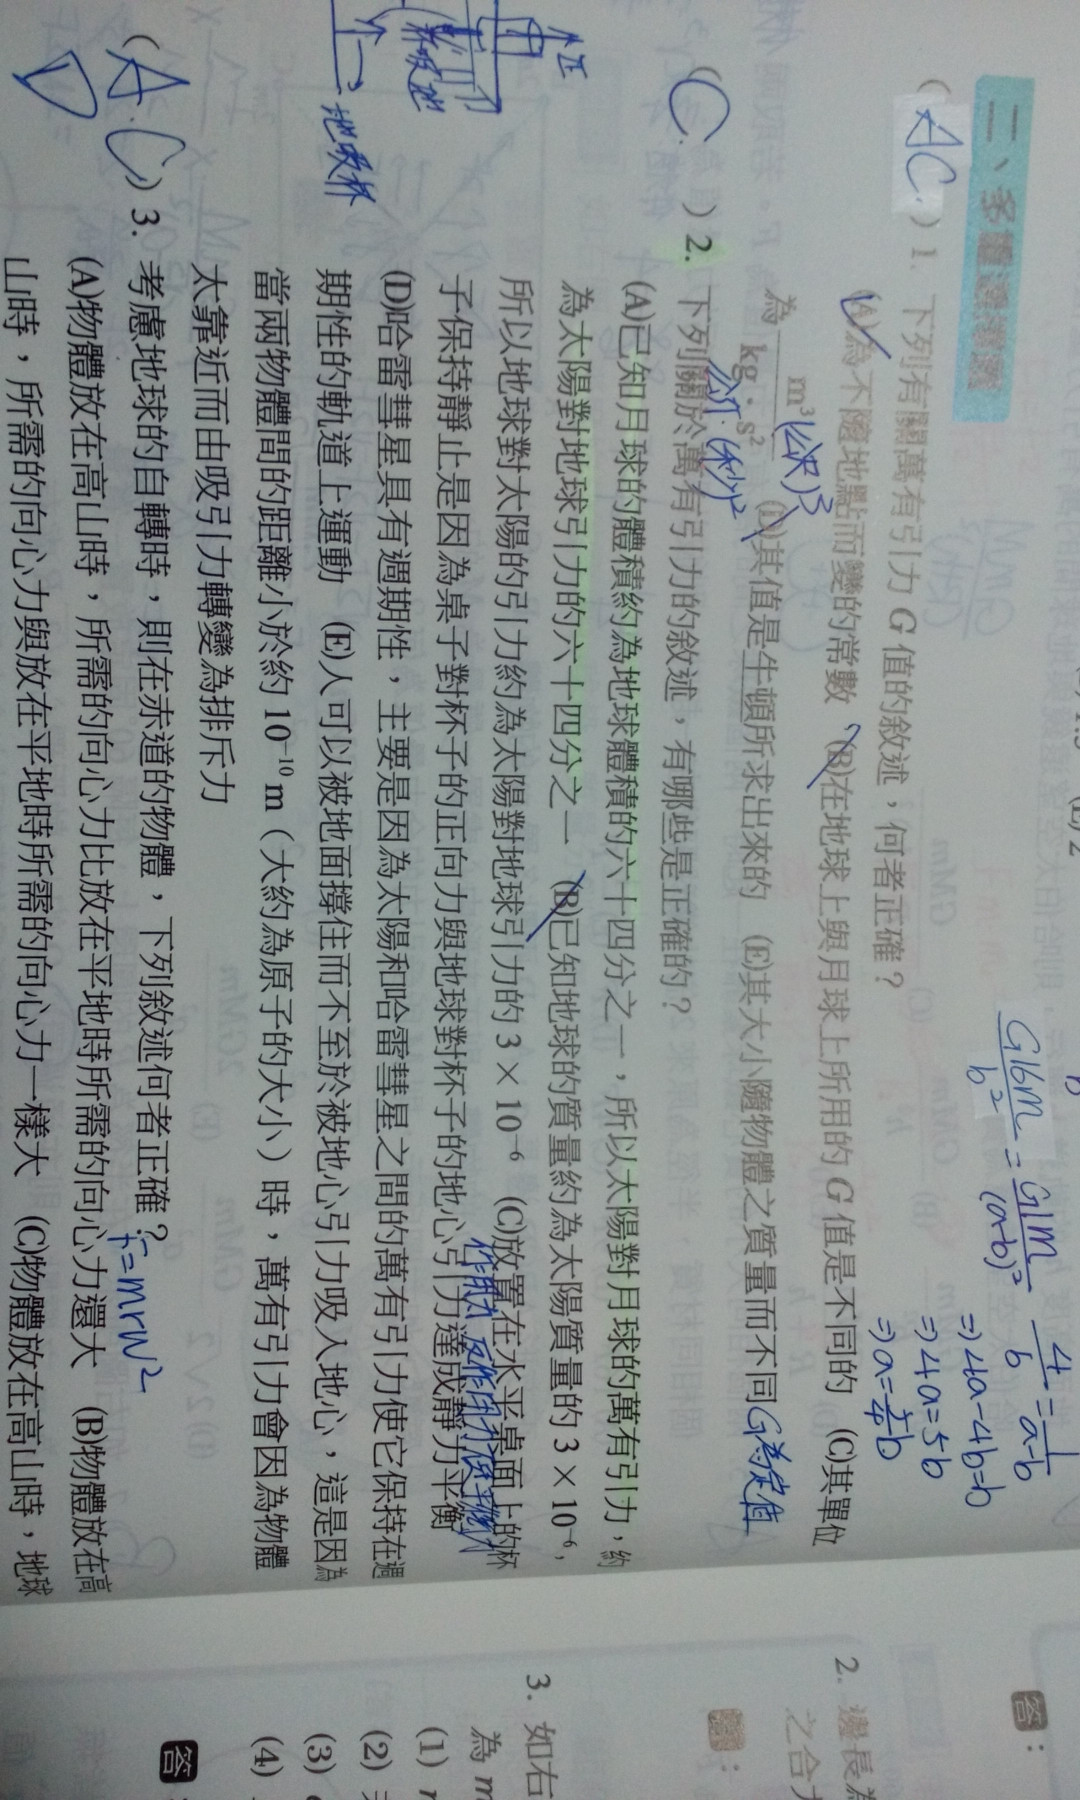 二、多重選擇題
(AC) 1. 下列有關萬有引力 G 值的敘述，何者正確？
(A)為不隨地點而變的常數 (B)在地球上與月球上所用的 G 值是不同的 (C)其單位
為 m³/kg·s² (D)其值是牛頓所求出來的 (E)其大小隨物體之質量而不同 G為定值
(公尺)³
公斤·(秒)²
(C) 2. 下列關於萬有引力的敘述，有哪些是正確的？
(A)已知月球的體積約為地球體積的六十四分之一，所以太陽對月球的萬有引力，約
為太陽對地球引力的六十四分之一 (B)已知地球的質量約為太陽質量的 3 × 10⁻⁶，
所以地球對太陽的引力約為太陽對地球引力的 3 × 10⁻⁶ (C)放置在水平桌面上的杯
子保持靜止是因為桌子對杯子的正向力與地球對杯子的地心引力達成靜力平衡
(D)哈雷彗星具有週期性，主要是因為太陽和哈雷彗星之間的萬有引力使它保持在週
期性的軌道上運動 (E)人可以被地面撐住而不至於被地心引力吸入地心，這是因為
當兩物體間的距離小於約 10⁻¹⁰ m（大約為原子的大小）時，萬有引力會因為物體
太靠近而由吸引力轉變為排斥力
地吸杯
杯吸地
(A.C) 3. 考慮地球的自轉時，則在赤道的物體，下列敘述何者正確？
D
F=mrw²
(A)物體放在高山時，所需的向心力比放在平地時所需的向心力還大 (B)物體放在高
山時，所需的向心力與放在平地時所需的向心力一樣大 (C)物體放在高山時，地球
G16m/b² = G1m/(a-b)²
4/b = 1/a-b
⇒4a-4b=b
⇒4a=5b
⇒a=5/4b
答：
2. 邊長為
之合力
答：
3. 如右
為 m
(1)
(2)
(3)
(4)
答